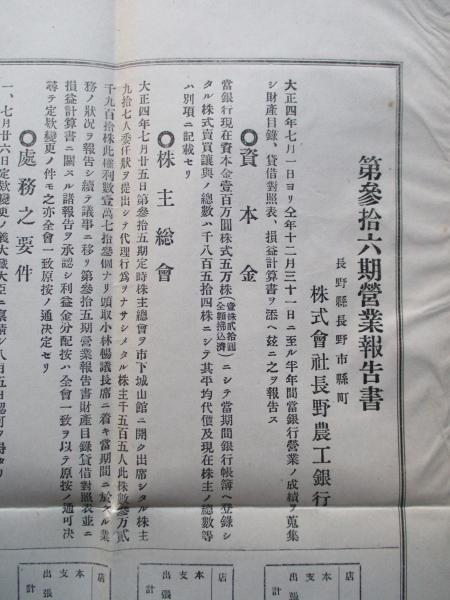 第參拾六期營業報告書
長野縣長野市縣町
株式會社長野農工銀行
大正四年七月一日ヨリ仝年十二月三十一日ニ至ル半年間當銀行營業ノ成績ヲ蒐集
シ財產目錄、貸借對照表、損益計算書ヲ添ヘ玆ニ之ヲ報告ス
◎資本金
當銀行現在資本金壹百万圓株式五万株(壹株貳拾圓全額拂込濟)ニシテ當期間銀行帳簿ヘ登錄シ
タル株式賣買讓與ノ總數ハ千八百五拾四株ニシテ其平均代價及現在株主ノ總數等
ハ別項ニ記載セリ
◎株主總會
大正四年七月廿五日第參拾五期定時株主總會ヲ市下城山館ニ開ク出席シタル株主
九拾七人委任狀ヲ提出シテ代理行爲ヲナサシメタル株主千五百五人此株數參万貳
千九百拾株此權利數壹萬七拾參個ナリ頭取小林暢議長席ニ着キ當期間ニ於ケル業
務ノ狀況ヲ報告シ續テ議事ニ移リ第參拾五期營業報告書財產目錄貸借對照表並ニ
損益計算書ニ關スル諸報告ヲ承認シ利益金分配按ハ全會一致ヲ以テ原按ノ通可決
尋テ定欵變更ノ件モ之亦全會一致原按ノ通決定セリ
◎處務之要件
一、七月廿六日定欵變更ノ義大藏大臣ニ稟請シ八月五日認可ヲ得タリ
店
本
支
出張
計
店
本
支
出張
計
店
本
支
出張
計